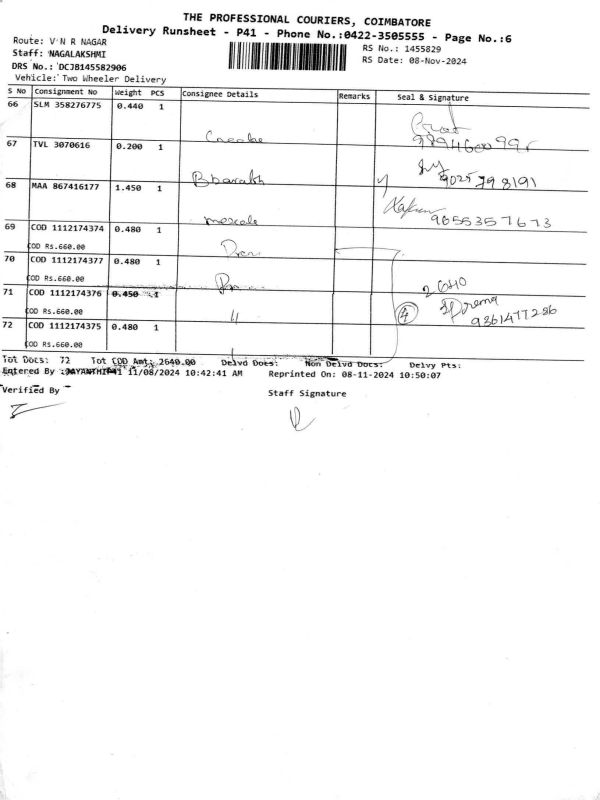 THE PROFESSIONAL COURIERS, COIMBATORE
Delivery Runsheet - P41 - Phone No.:0422-3505555 - Page No.:6
Route: V N R NAGAR
RS No.: 1455829
Staff: NAGALAKSHMI
RS Date: 08-Nov-2024
DRS No.: DCJB145582906
Vehicle: Two Wheeler Delivery
S No Consignment No Weight PCS Consignee Details Remarks Seal & Signature
66 SLM 358276775 0.440 1
67 TVL 3070616 0.200 1
Bharath 9025798191
68 MAA 867416177 1.450 1
9655357673
69 COD 1112174374 0.480 1
COD Rs.660.00
70 COD 1112174377 0.480 1
COD Rs.660.00
2640
71 COD 1112174376 0.450 1
COD Rs.660.00
4 Prema
9361477286
72 COD 1112174375 0.480 1
COD Rs.660.00
Tot Docs: 72 Tot COD Amt: 2640.00 Delvd Docs: Non Delvd Docs: Delvy Pts:
Entered By :JAYANTHIP41 11/08/2024 10:42:41 AM Reprinted On: 08-11-2024 10:50:07
Verified By
Staff Signature